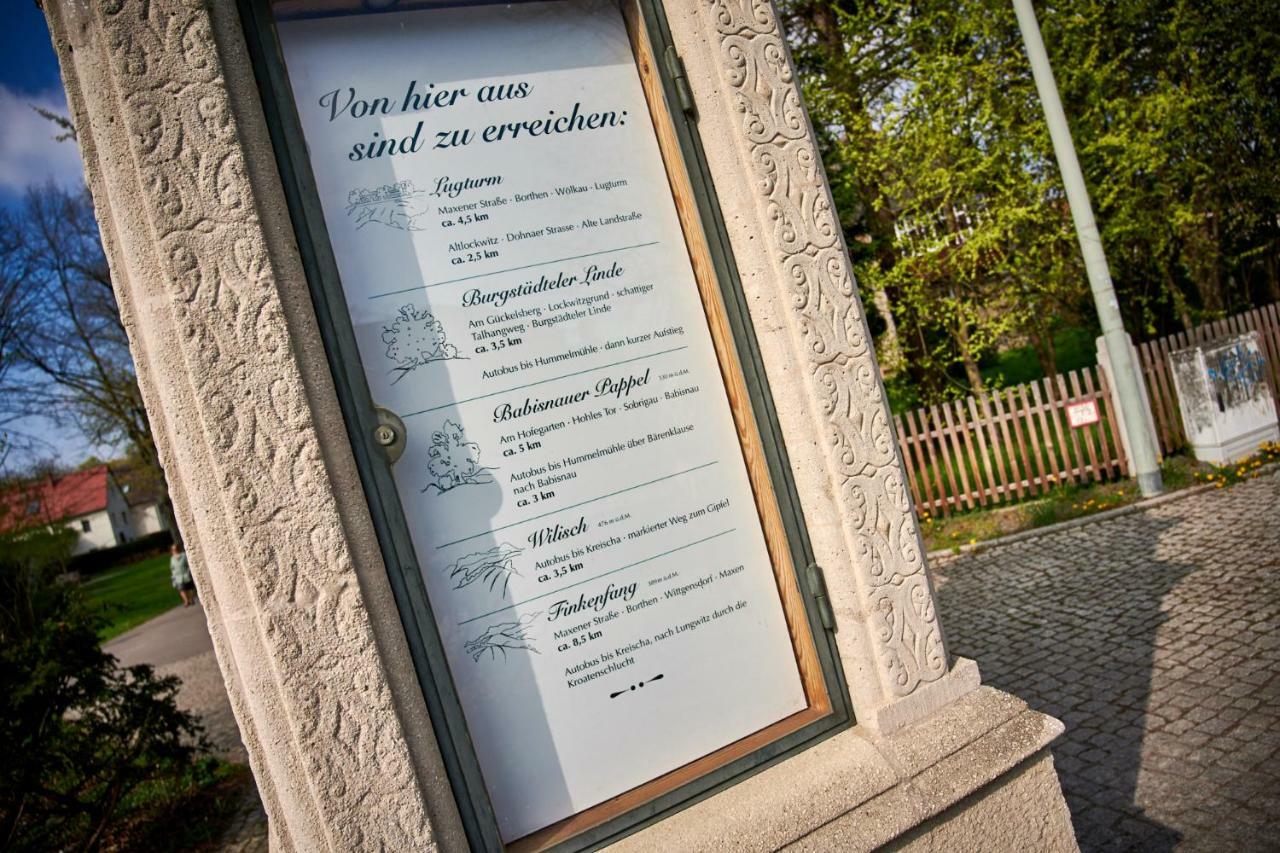 Von hier aus
sind zu erreichen:
Lugturm
Maxener Straße · Borthen · Wölkau · Lugturm
ca. 4,5 km
Altlockwitz · Dohnaer Strasse · Alte Landstraße
ca. 2,5 km
Burgstädteler Linde
Am Gückelsberg · Lockwitzgrund · schattiger
Talhangweg · Burgstädteler Linde
ca. 3,5 km
Autobus bis Hummelmühle · dann kurzer Aufstieg
Babisnauer Pappel 330 m ü.d.M.
Am Hofegarten · Hohles Tor · Sobrigau · Babisnau
ca. 5 km
Autobus bis Hummelmühle über Bärenklause
nach Babisnau
ca. 3 km
Wilisch 476 m ü.d.M.
Autobus bis Kreischa · markierter Weg zum Gipfel
ca. 3,5 km
Finkenfang 389 m ü.d.M.
Maxener Straße · Borthen · Wittgensdorf · Maxen
ca. 8,5 km
Autobus bis Kreischa, nach Lungwitz durch die
Kroatenschlucht